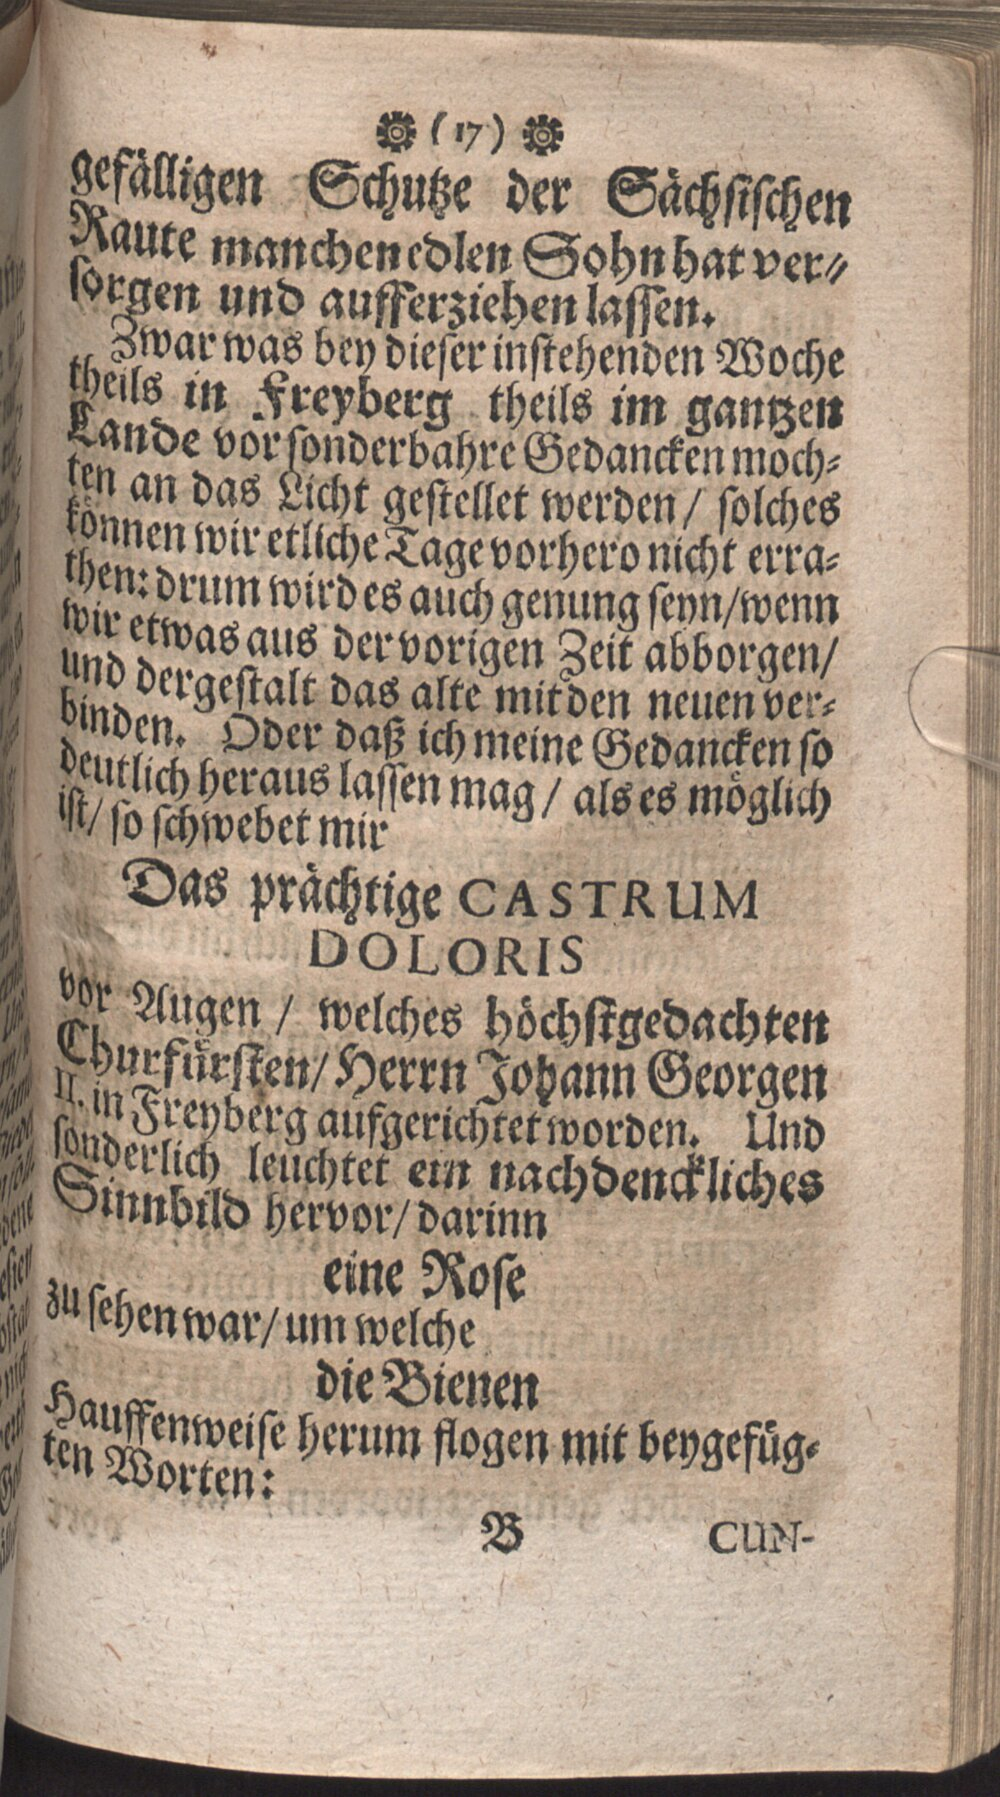 (17)
gefälligen Schutze der Sächsischen
Raute manchen edlen Sohn hat ver-
sorgen und aufferziehen lassen.
Zwar was bey dieser instehenden Woche
theils in Freyberg theils im gantzen
Lande vor sonderbahre Gedancken moch-
ten an das Licht gestellet werden/ solches
können wir etliche Tage vorhero nicht erra-
then: drum wird es auch genung seyn/ wenn
wir etwas aus der vorigen Zeit abborgen/
und dergestalt das alte mit den neuen ver-
binden. Oder daß ich meine Gedancken so
deutlich heraus lassen mag/ als es möglich
ist/ so schwebet mir
Das prächtige CASTRUM
DOLORIS
vor Augen/ welches höchstgedachten
Churfürsten/ Herrn Johann Georgen
II. in Freyberg aufgerichtet worden. Und
sonderlich leuchtet ein nachdenckliches
Sinnbild hervor/ darinn
eine Rose
zu sehen war/ um welche
die Bienen
Hauffenweise herum flogen mit beygefüg-
ten Worten:
B CUN-